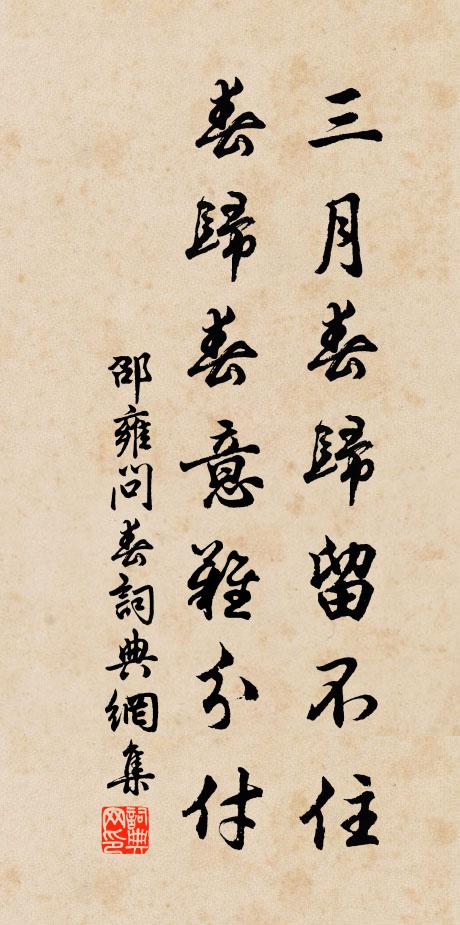 三月春歸留不住
春歸春意難分付
邵雍問春詞典網集
詞典
网印